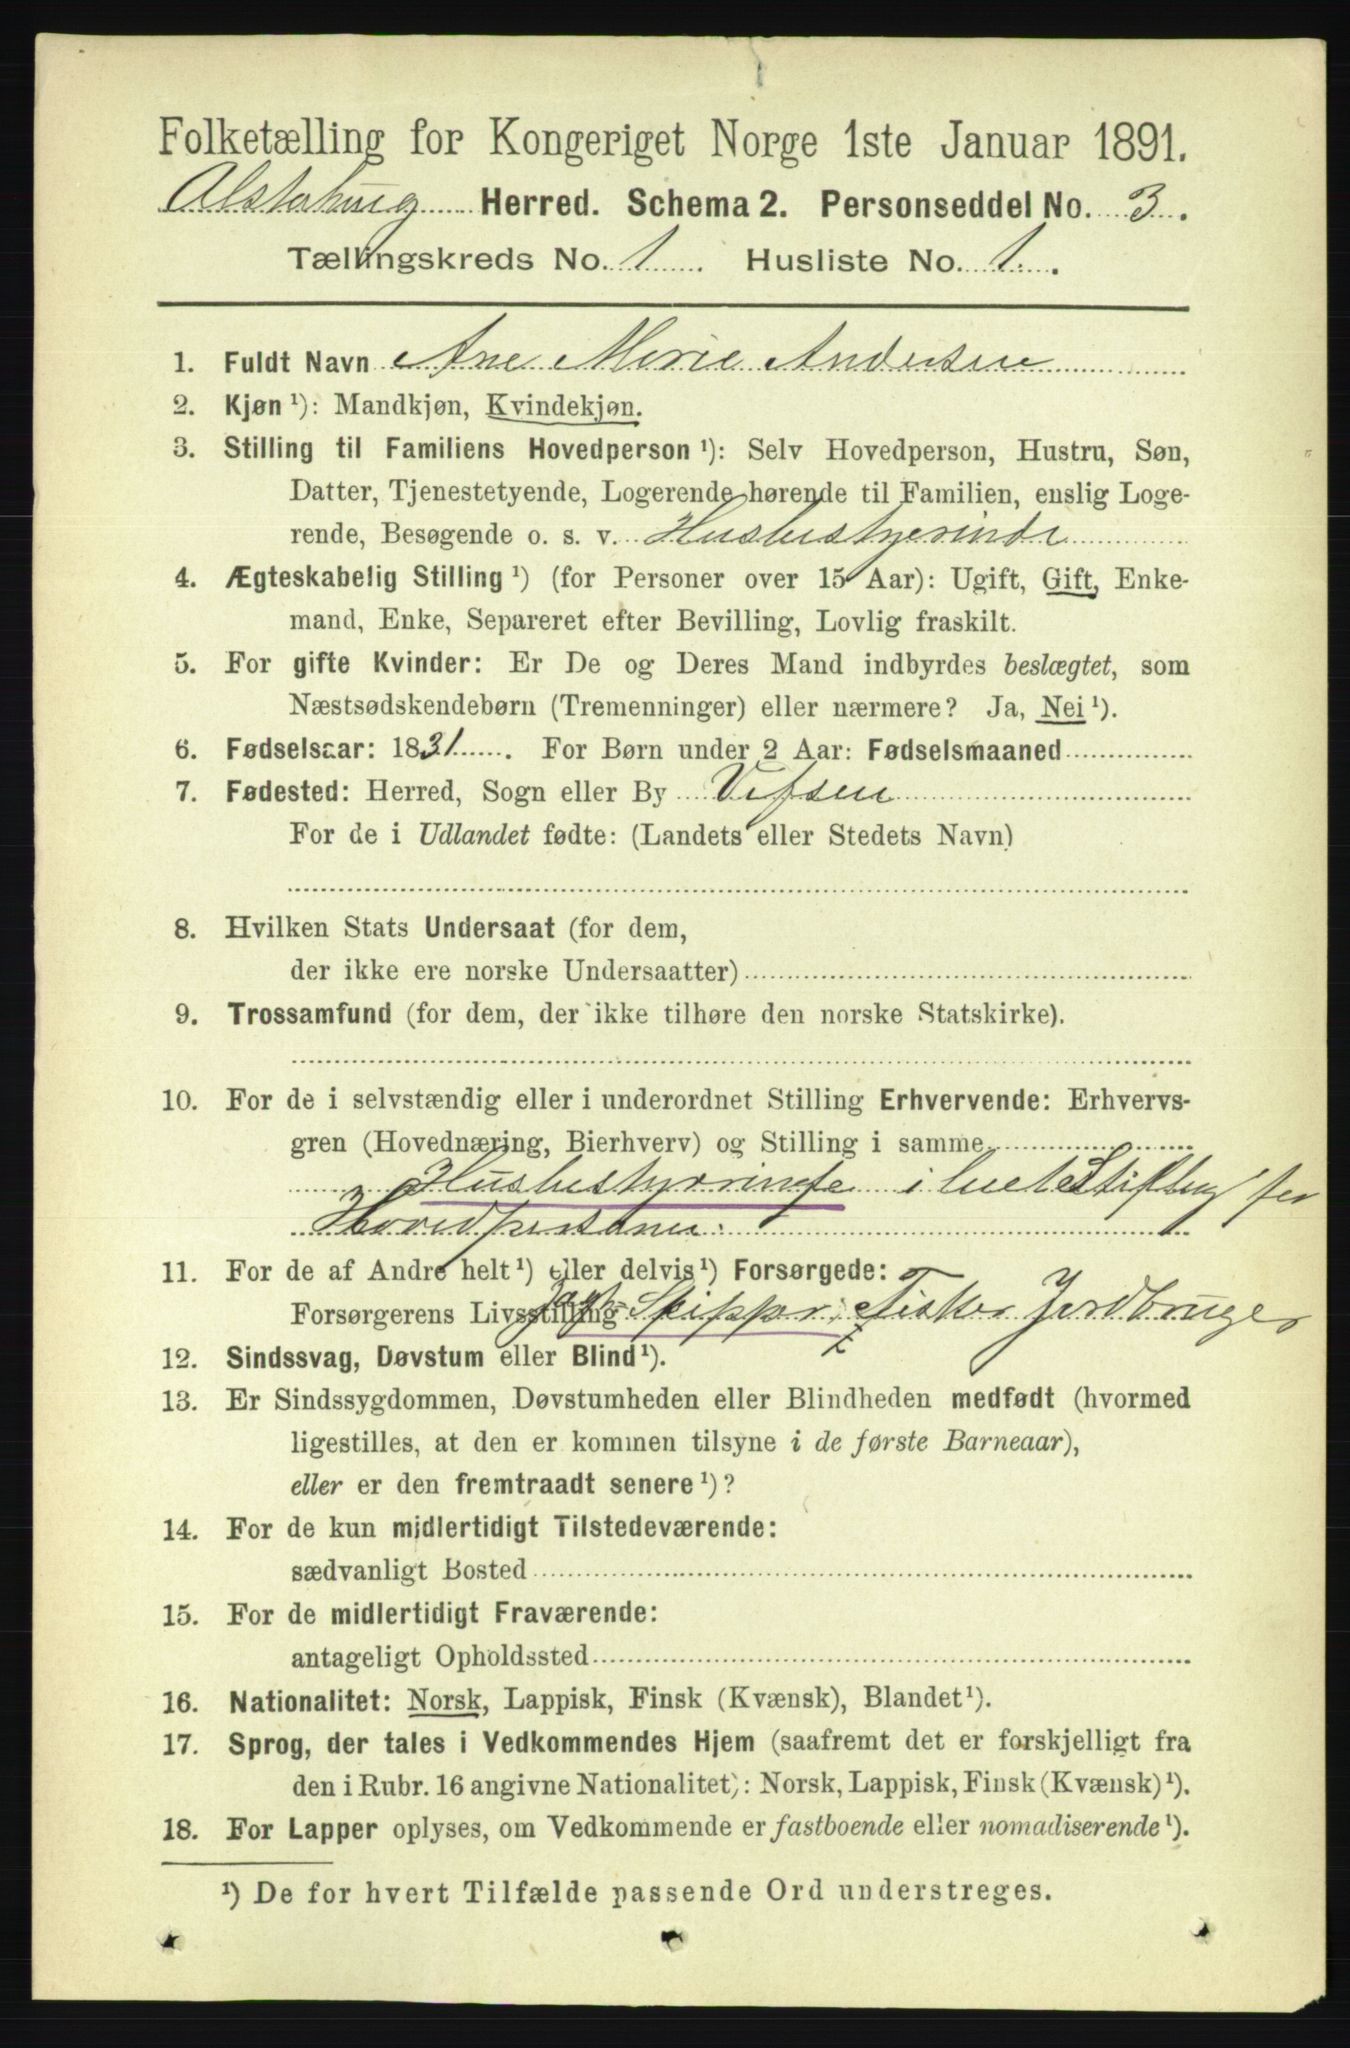 Folketælling for Kongeriget Norge 1ste Januar 1891.
Alstahaug Herred. Schema 2. Personseddel No. 3.
Tællingskreds No. 1 Husliste No. 1.
1. Fuldt Navn Ane Marie Andersen
2. Kjøn ¹): Mandkjøn, Kvindekjøn.
3. Stilling til Familiens Hovedperson ¹): Selv Hovedperson, Hustru, Søn,
Datter, Tjenestetyende, Logerende hørende til Familien, enslig Loge-
rende, Besøgende o. s. v. Husbestyerinde
4. Ægteskabelig Stilling ¹) (for Personer over 15 Aar): Ugift, Gift, Enke-
mand, Enke, Separeret efter Bevilling, Lovlig fraskilt.
5. For gifte Kvinder: Er De og Deres Mand indbyrdes beslægtet, som
Næstsødskendebørn (Tremenninger) eller nærmere? Ja, Nei ¹).
6. Fødselsaar: 1831. For Børn under 2 Aar: Fødselsmaaned
7. Fødested: Herred, Sogn eller By Vefsen
For de i Udlandet fødte: (Landets eller Stedets Navn)
8. Hvilken Stats Undersaat (for dem,
der ikke ere norske Undersaatter)
9. Trossamfund (for dem, der ikke tilhøre den norske Statskirke).
10. For de i selvstændig eller i underordnet Stilling Erhvervende: Erhvervs-
gren (Hovednæring, Bierhverv) og Stilling i samme
Husbestyrrinde i
Hovedpersonen.
11. For de af Andre helt ¹) eller delvis ¹) Forsørgede:
Forsørgerens Livsstilling Jagt-Skipper, Fisker Jordbruger
12. Sindssvag, Døvstum eller Blind ¹).
13. Er Sindssygdommen, Døvstumheden eller Blindheden medfødt (hvormed
ligestilles, at den er kommen tilsyne i de første Barneaar),
eller er den fremtraadt senere ¹)?
14. For de kun midlertidigt Tilstedeværende:
sædvanligt Bosted
15. For de midlertidigt Fraværende:
antageligt Opholdssted
16. Nationalitet: Norsk, Lappisk, Finsk (Kvænsk), Blandet ¹).
17. Sprog, der tales i Vedkommendes Hjem (saafremt det er forskjelligt fra
den i Rubr. 16 angivne Nationalitet): Norsk, Lappisk, Finsk (Kvænsk) ¹).
18. For Lapper oplyses, om Vedkommende er fastboende eller nomadiserende ¹).
¹) De for hvert Tilfælde passende Ord understreges.